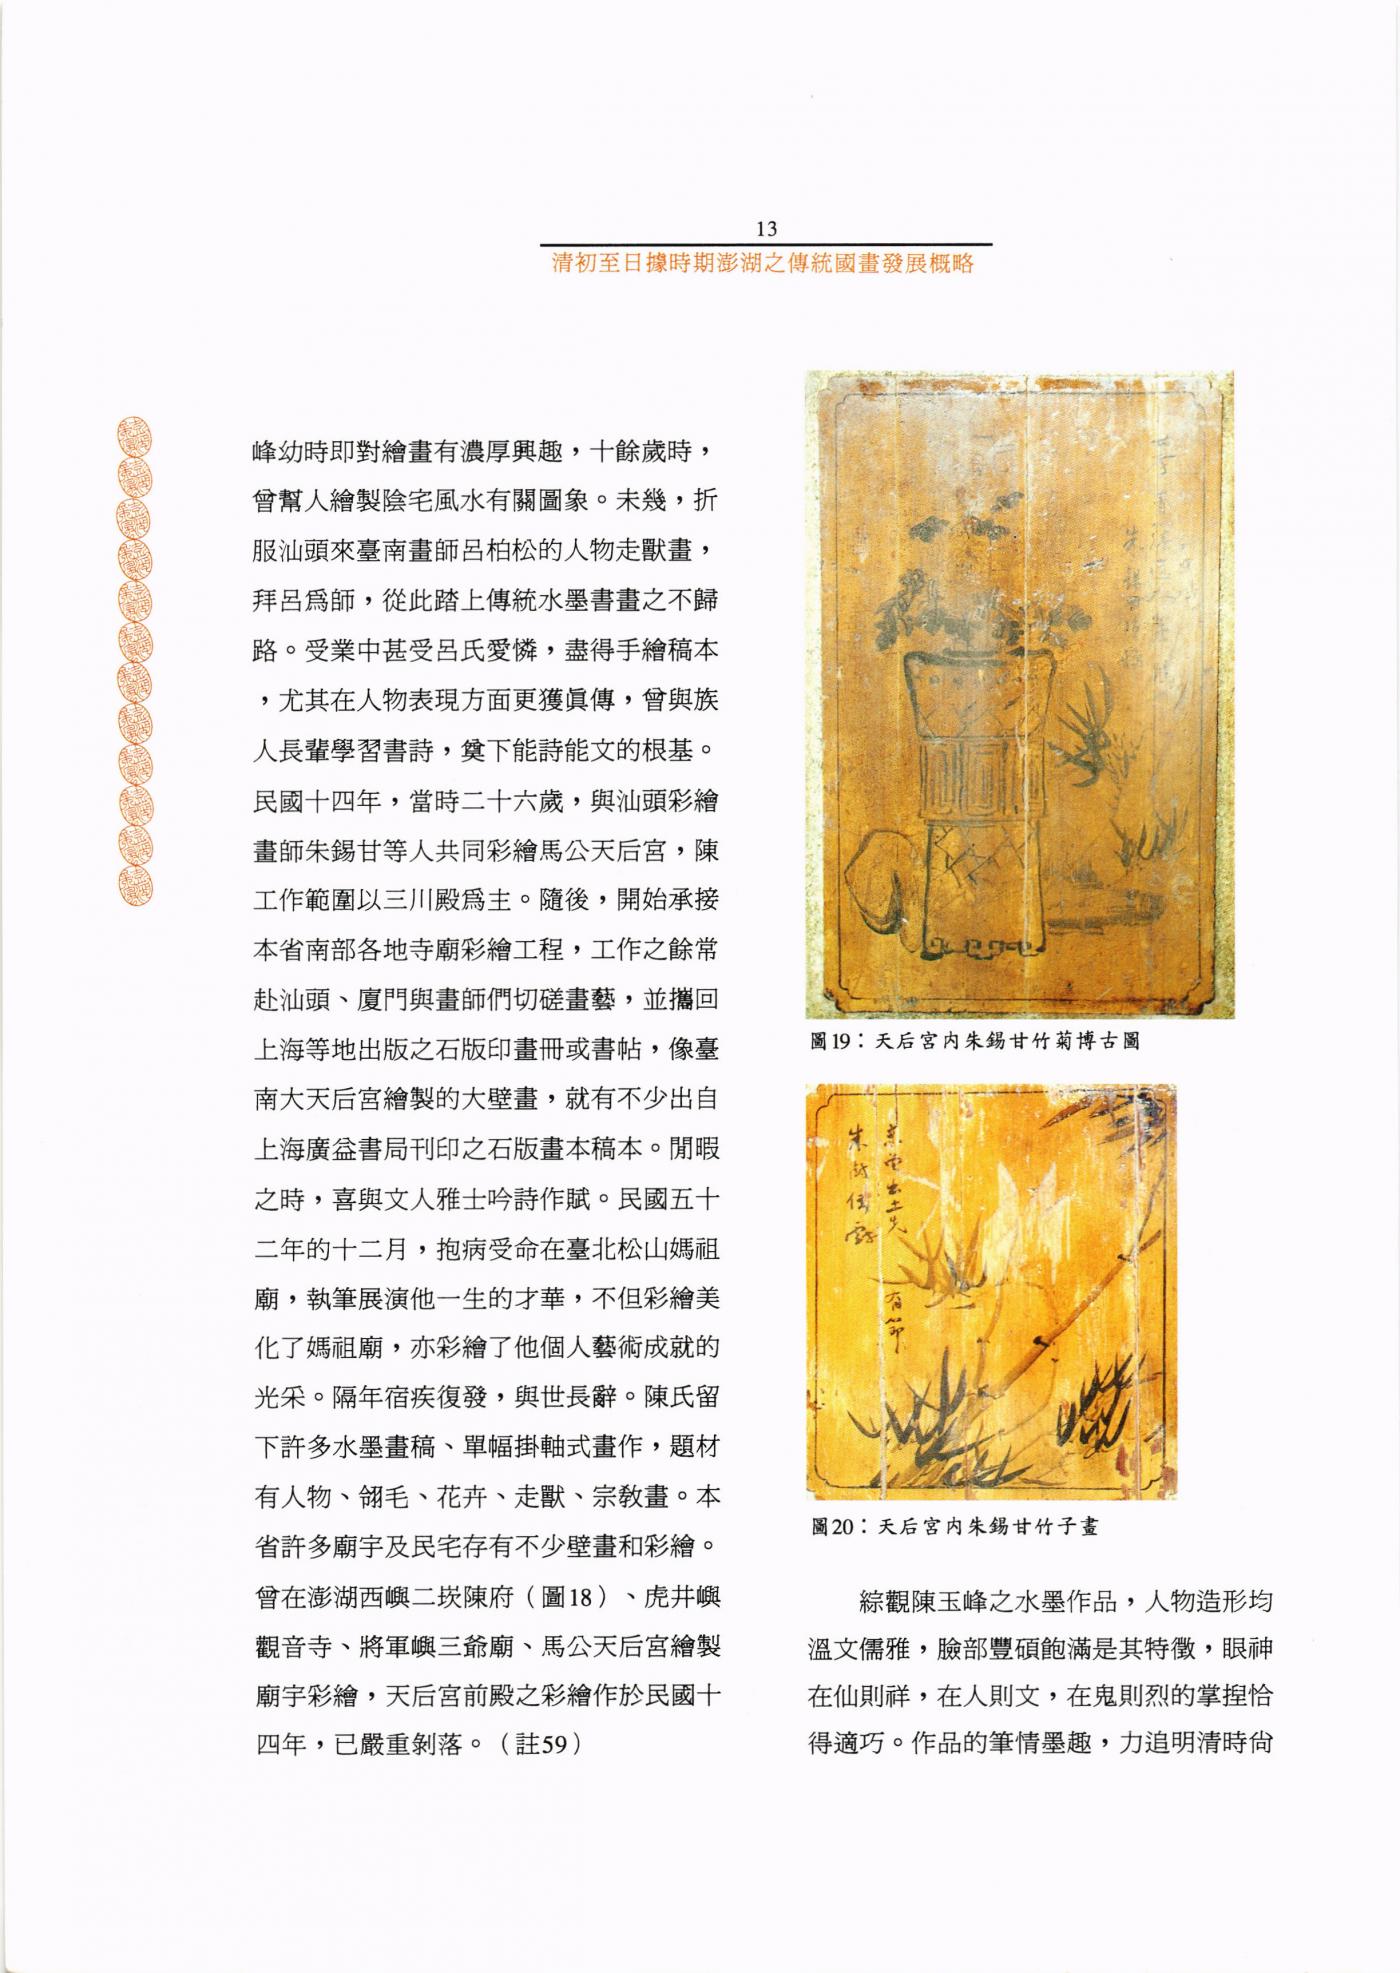 13
清初至日據時期澎湖之傳統國畫發展概略
峰幼時即對繪畫有濃厚興趣，十餘歲時，
曾幫人繪製陰宅風水有關圖象。未幾，折
服汕頭來臺南畫師呂柏松的人物走獸畫，
拜呂爲師，從此踏上傳統水墨書畫之不歸
路。受業中甚受呂氏愛憐，盡得手繪稿本
，尤其在人物表現方面更獲眞傳，曾與族
人長輩學習書詩，奠下能詩能文的根基。
民國十四年，當時二十六歲，與汕頭彩繪
畫師朱錫甘等人共同彩繪馬公天后宮，陳
工作範圍以三川殿爲主。隨後，開始承接
本省南部各地寺廟彩繪工程，工作之餘常
赴汕頭、廈門與畫師們切磋畫藝，並攜回
上海等地出版之石版印畫冊或書帖，像臺
南大天后宮繪製的大壁畫，就有不少出自
上海廣益書局刊印之石版畫本稿本。閒暇
之時，喜與文人雅士吟詩作賦。民國五十
二年的十二月，抱病受命在臺北松山媽祖
廟，執筆展演他一生的才華，不但彩繪美
化了媽祖廟，亦彩繪了他個人藝術成就的
光采。隔年宿疾復發，與世長辭。陳氏留
下許多水墨畫稿、單幅掛軸式畫作，題材
有人物、翎毛、花卉、走獸、宗教畫。本
省許多廟宇及民宅存有不少壁畫和彩繪。
曾在澎湖西嶼二崁陳府（圖18）、虎井嶼
觀音寺、將軍嶼三爺廟、馬公天后宮繪製
廟宇彩繪，天后宮前殿之彩繪作於民國十
四年，已嚴重剝落。（註59）
圖19：天后宮内朱錫甘竹菊博古圖
未曾出土先
有節
朱
圖20：天后宮内朱錫甘竹子畫
綜觀陳玉峰之水墨作品，人物造形均
溫文儒雅，臉部豐碩飽滿是其特徵，眼神
在仙則祥，在人則文，在鬼則烈的掌捏恰
得適巧。作品的筆情墨趣，力追明清時尙